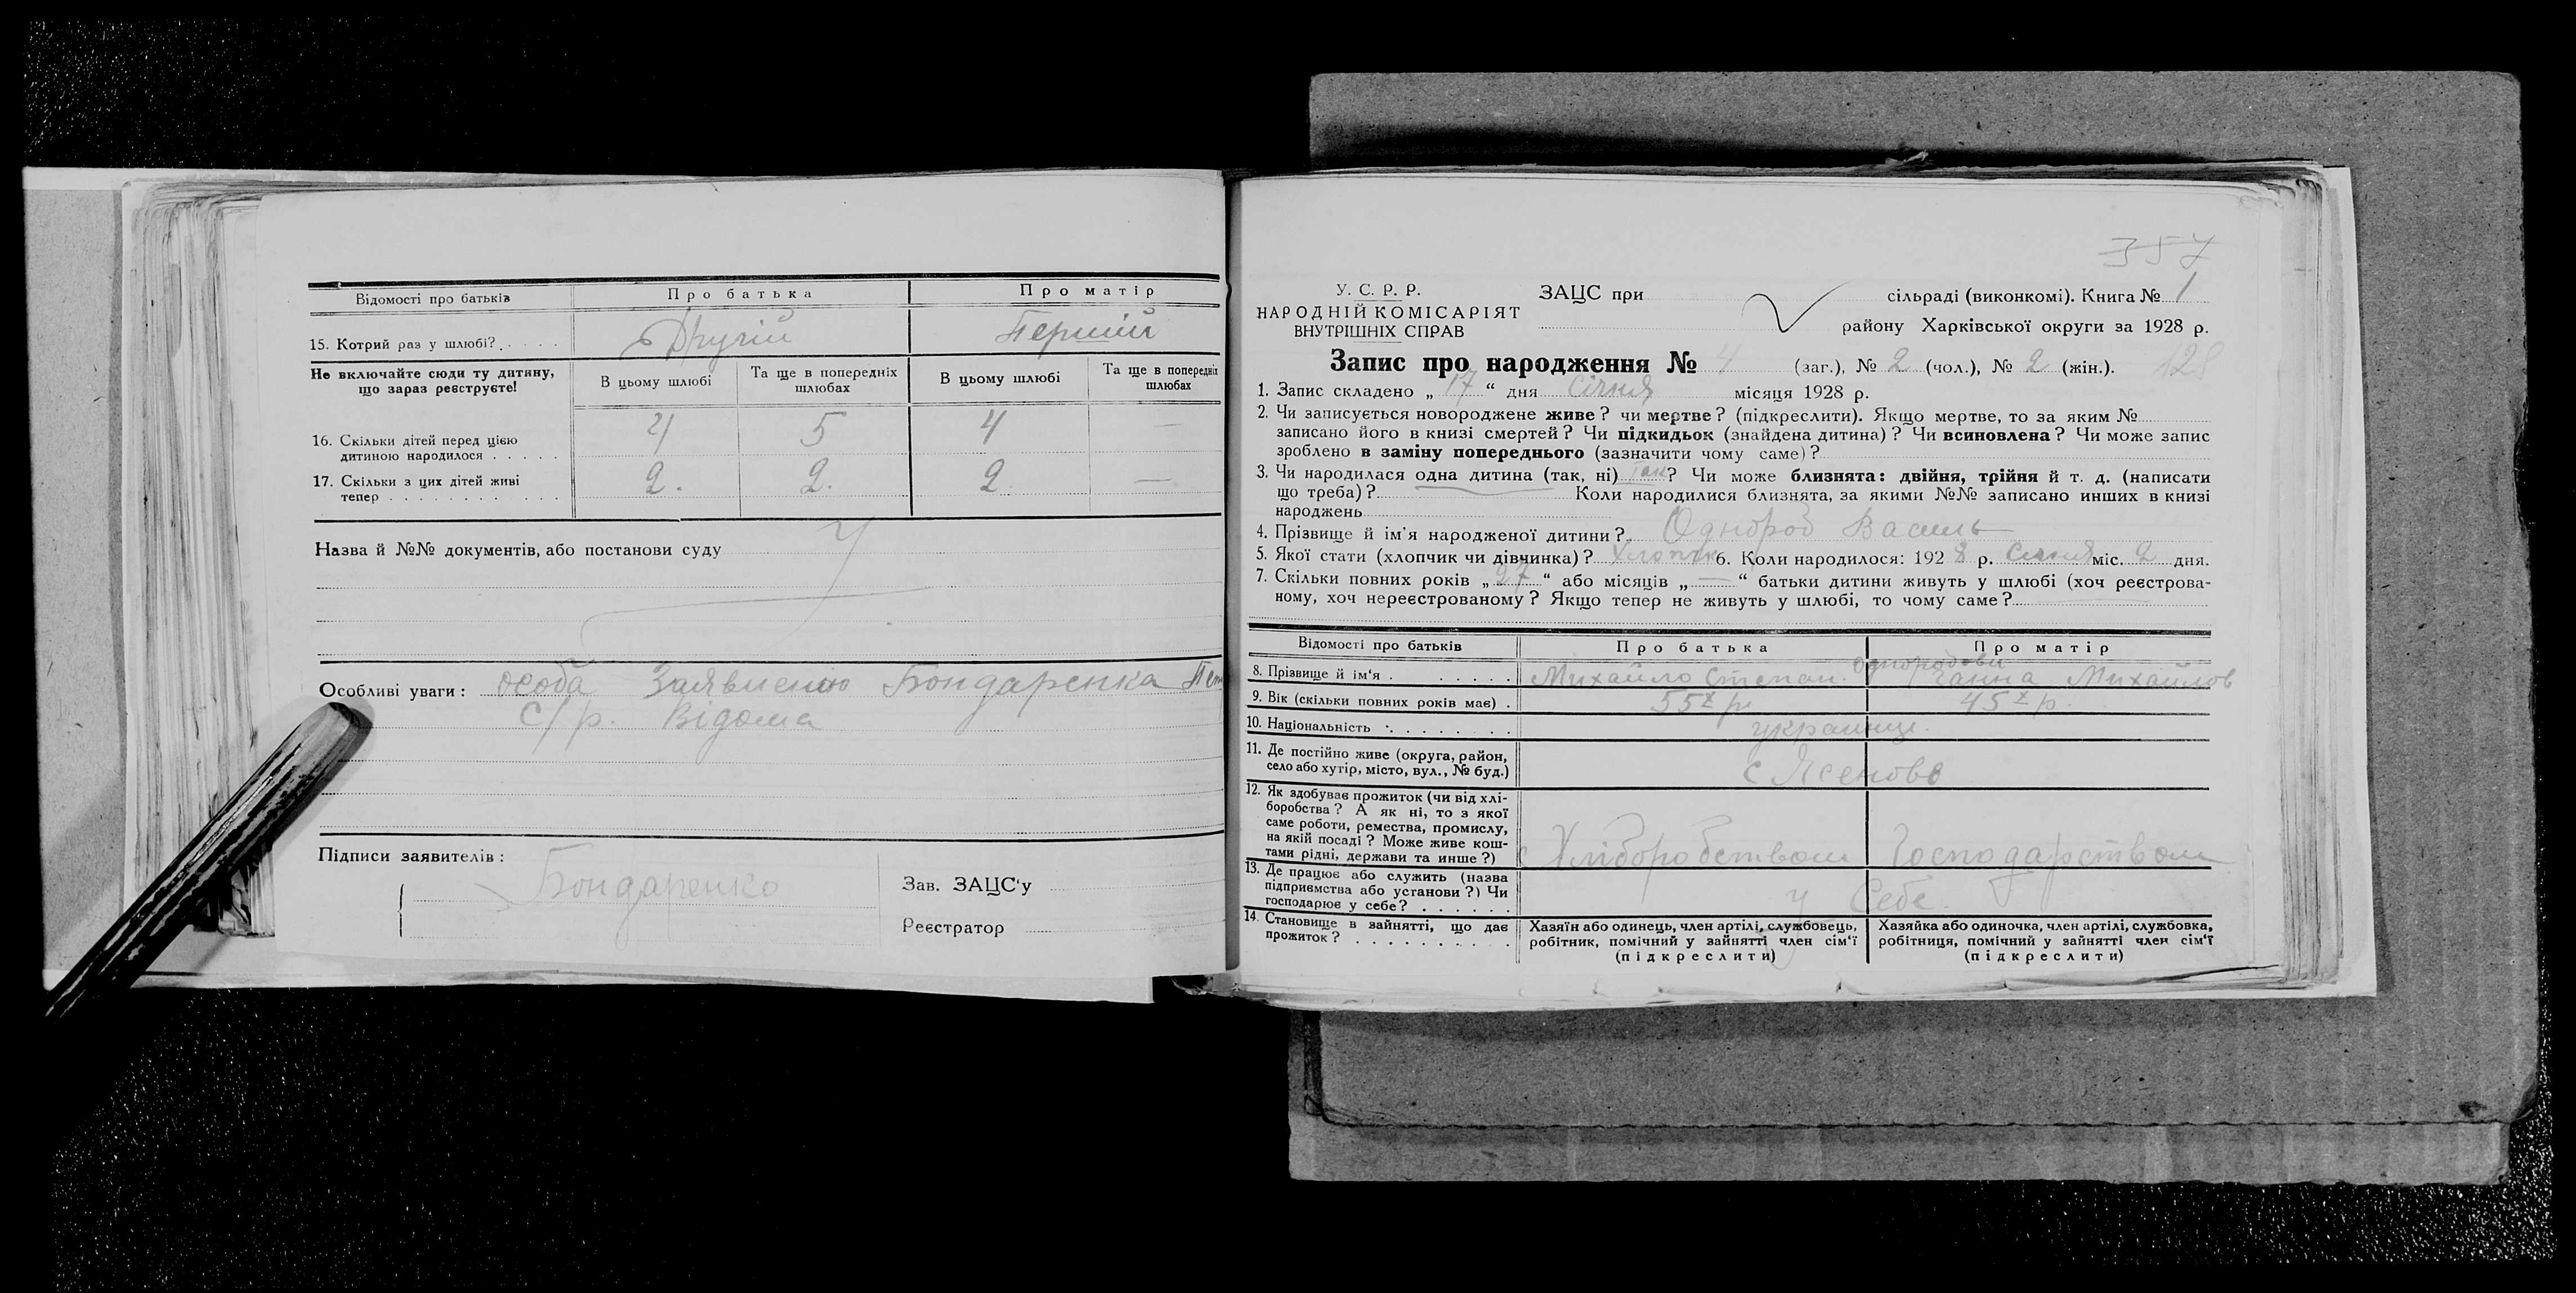 Відомості про батьків
Про батька
Про матір
15. Котрий раз у шлюбі?
Другій
Перший
Не включайте сюди ту дитину, що зараз реєструєте!
В цьому шлюбі
Та ще в попередніх шлюбах
В цьому шлюбі
Та ще в попередніх шлюбах
16. Скільки дітей перед цією
дитиною народилося
4 5 4 —
17. Скільки з цих дітей живі
тепер
2. 2. 2 —
Назва й №№ документів, або постанови суду
Особливі уваги: особа Заявленою Бондаренка
с/р. Відома
Підписи заявителів:
Бондаренко
Зав. ЗАЦС'у
Реєстратор
357
У. С. Р. Р.
НАРОДНІЙ КОМІСАРІЯТ
ВНУТРІШНІХ СПРАВ
ЗАЦС при
сільраді (виконкомі). Книга № 1
району Харківської округи за 1928 р.
Запис про народження № 4 (заг.), № 2 (чол.), № 2 (жін.). 128
1. Запис складено „ 17 “ дня Січня місяця 1928 р.
2. Чи записується новороджене живе? чи мертве? (підкреслити). Якщо мертве, то за яким №
записано його в книзі смертей? Чи підкидьок (знайдена дитина)? Чи всиновлена? Чи може запис
зроблено в заміну попереднього (зазначити чому саме)?
3. Чи народилася одна дитина (так, ні) так? Чи може близнята: двійня, трійня й т. д. (написати
що треба)? Коли народилися близнята, за якими №№ записано инших в книзі
народжень
4. Прізвище й ім'я народженої дитини? Однород Василь
5. Якої стати (хлопчик чи дівчинка)? Хлопчик 6. Коли народилося: 1928 р. Січня міс. 2 дня.
7. Скільки повних років „ 27 “ або місяців „ — “ батьки дитини живуть у шлюбі (хоч реєстрова-
ному, хоч нереєстрованому? Якщо тепер не живуть у шлюбі, то чому саме?
Відомості про батьків
Про батька
Про матір
8. Прізвище й ім'я
Однородови
Михайло Степан. Ганна Михайлов
9. Вік (скільки повних років має)
55 р. 45 р.
10. Національність
українці
11. Де постійно живе (округа, район,
село або хутір, місто, вул., № буд.)
с Ясенове
12. Як здобуває прожиток (чи від хлі-
боробства? А як ні, то з якої
саме роботи, ремества, промислу,
на якій посаді? Може живе кош-
тами рідні, держави та инше?)
Хліборобством
Господарством
13. Де працює або служить (назва
підприємства або установи?) Чи
господарює у себе?
у Себе.
14. Становище в зайнятті, що дає
прожиток?
Хазяїн або одинець, член артілі, службовець,
робітник, помічний у зайнятті член сім'ї
(підкреслити)
Хазяйка або одиночка, член артілі, службовка,
робітниця, помічний у зайнятті член сім'ї
(підкреслити)